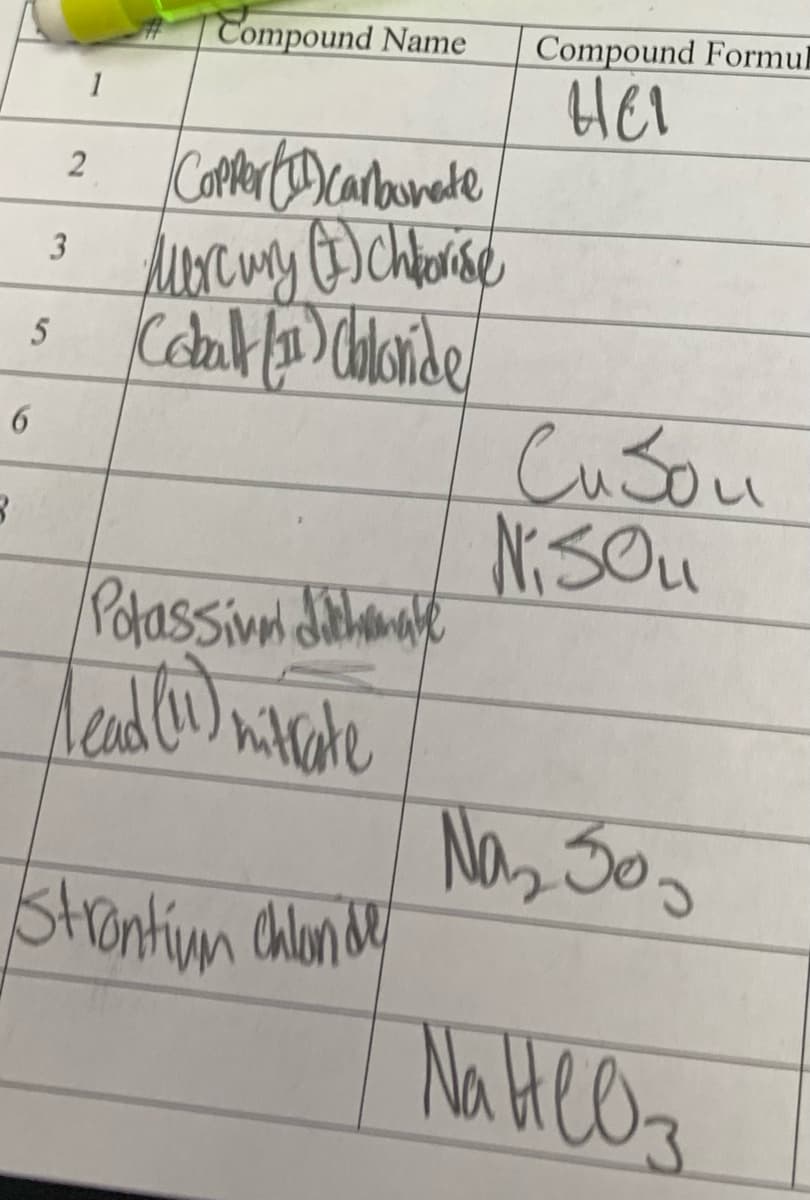 # Compound Name Compound Formul
1 HCl
2 Copper(II) carbonate
3 Mercury (I) chlorise
5 Cobalt (II) chloride
6 CuSO4
NiSO4
Potassium dichromate
lead (II) nitrate
Na2 SO3
Strontium chloride
NaHCO3